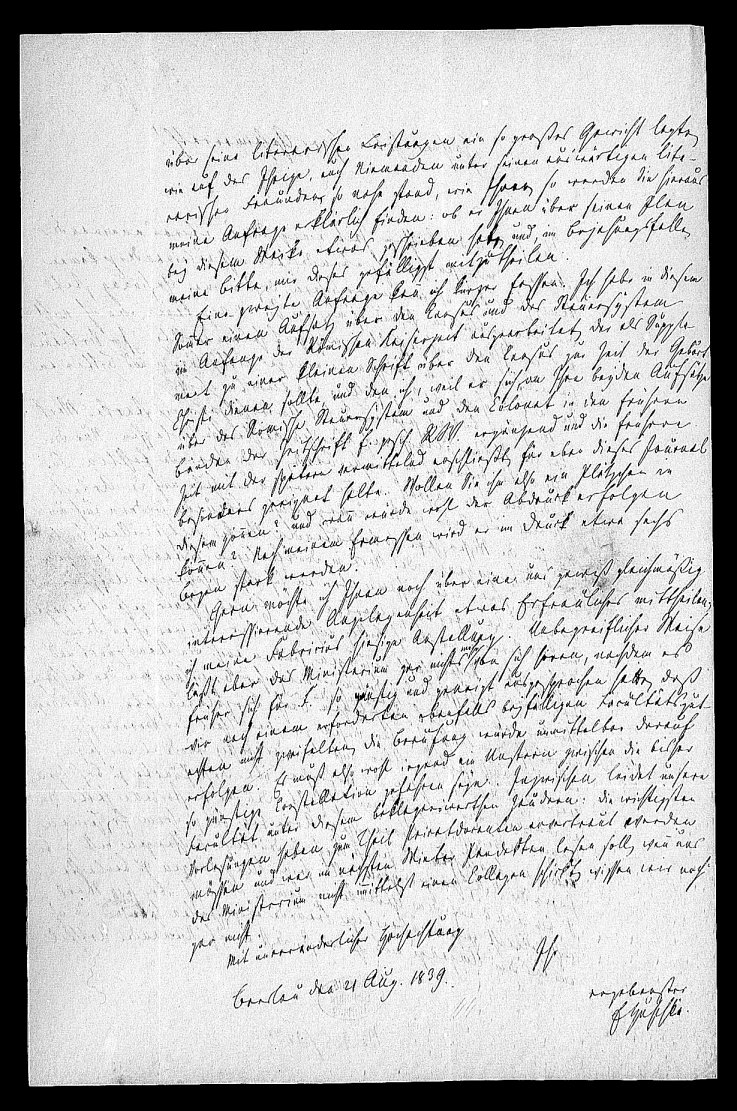 über seine literarischen Leistungen ein so großes Gewicht legte,
wie auf das Ihrige, auch Niemanden unter seinen auswärtigen lite-
rarischen Freunden so nahe stand, wie Ihnen, so werden Sie hieraus
meine Anfrage erklärlich finden: ob er Ihnen über seinen Plan
bey diesem Werke etwas geschrieben habe, und, im Bejahungsfalle,
meine Bitte, mir dieses gefälligst mitzutheilen.
Eine zweyte Anfrage kan ich kürzer fassen. Ich habe in diesem
Sommer einen Aufsatz über den Census und das Steuersystem
im Anfange der Römischen Kaiserzeit ausgearbeitet, der als Supple-
ment zu einer kleinen Schrift über den Census zur Zeit der Geburt
Christi dienen sollte und den ich, weil er sich an Ihre beyden Aufsätze
über das Römische Steuersystem und den Colonat in den frühern
Bänden der Zeitschrift f. gesch. RW. ergänzend und die frühere
Zeit mit der spätern vermittelnd anschließt, für eben dieses Journal
besonders geeignet halte. Wollen Sie ihm also ein Plätzchen in
diesem gönnen? und wann würde wohl der Abdruck erfolgen
können? Nach meinem Ermessen wird er im Druck etwa sechs
Bogen stark werden.
Gern möchte ich Ihnen noch über eine uns gewiß gleichmäßig
interessierende Angelegenheit etwas Erfreuliches mittheilen,
ich meine Fabricius hiesige Anstellung. Unbegreiflicher Weise
läßt aber das Ministerium gar nichts mehr von sich hören, nachdem es
früher sich für F. so günstig und geneigt ausgesprochen hatte, daß
wir nach einem erforderten ebenfalls beyfälligen Facultätsgut-
achten nicht zweifelten, die Berufung würde unmittelbar darauf
erfolgen. Es muß also wohl irgend ein Unstern zwischen die bisher
so günstige Constellation gefahren seyn. Inzwischen leidet unsere
Facultät unter diesem beklagenswerthen Zaudern: die wichtigsten
Vorlesungen haben zum Theil Privatdocenten anvertraut werden
müssen und wer im nächsten Winter Pandekten lesen soll, wenn uns
das Ministerium nicht mittelst einen Collegen schickt, wissen wir noch
gar nicht.
Mit unveränderlicher Hochachtung
Ihr
Breslau den 21 Aug. 1839.
ergebenster
Huschke.